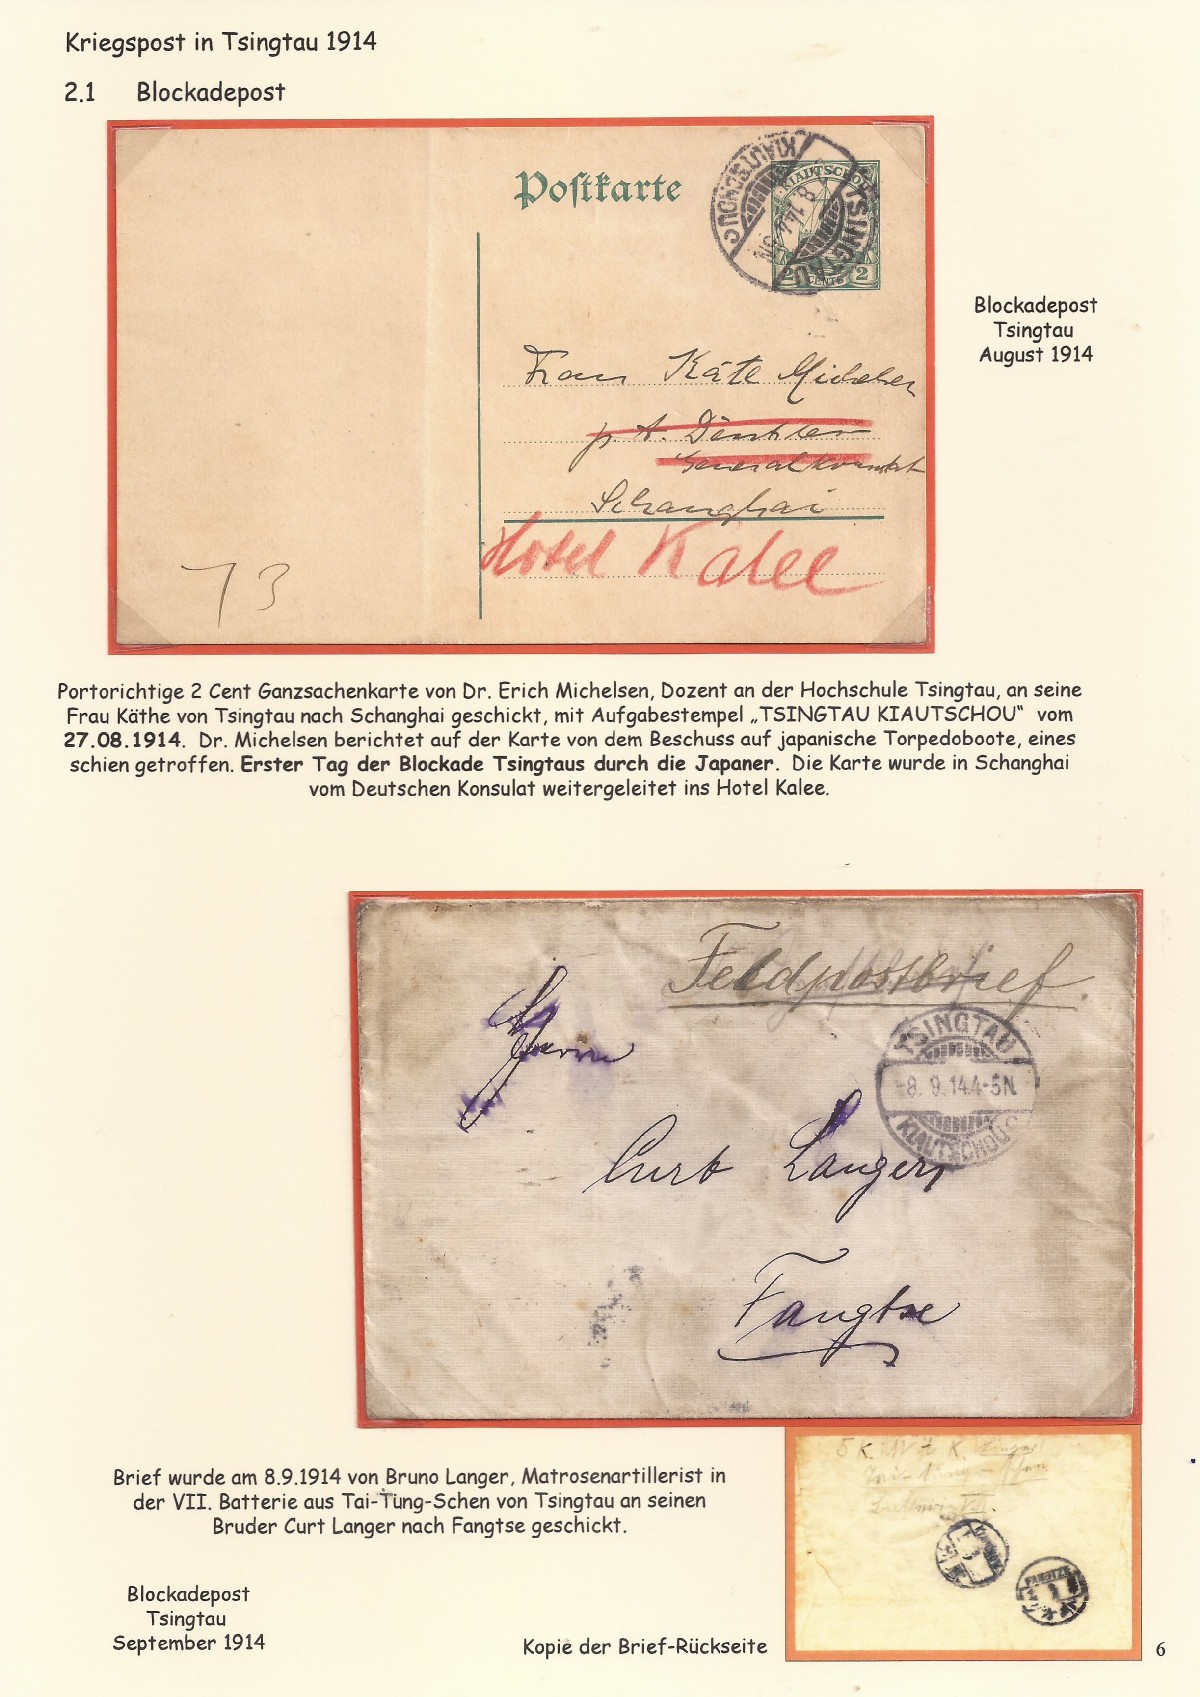 Kriegspost in Tsingtau 1914
2.1 Blockadepost
Postkarte
KIAUTSCHOU
2 CENTS 2
TSINGTAU
KIAUTSCHOU
8.14.4-5N
Blockadepost
Tsingtau
August 1914
Frau Käte Michelsen
p. A.
Generalkonsulat
Schanghai
Hotel Kalee
73
Portorichtige 2 Cent Ganzsachenkarte von Dr. Erich Michelsen, Dozent an der Hochschule Tsingtau, an seine
Frau Käthe von Tsingtau nach Schanghai geschickt, mit Aufgabestempel „TSINGTAU KIAUTSCHOU“ vom
27.08.1914. Dr. Michelsen berichtet auf der Karte von dem Beschuss auf japanische Torpedoboote, eines
schien getroffen. Erster Tag der Blockade Tsingtaus durch die Japaner. Die Karte wurde in Schanghai
vom Deutschen Konsulat weitergeleitet ins Hotel Kalee.
Feldpostbrief.
TSINGTAU
-8. 9.14.4-5N.
KIAUTSCHOU
Herrn
Curt Langer,
Fangtse
Brief wurde am 8.9.1914 von Bruno Langer, Matrosenartillerist in
der VII. Batterie aus Tai-Tung-Schen von Tsingtau an seinen
Bruder Curt Langer nach Fangtse geschickt.
Blockadepost
Tsingtau
September 1914
Kopie der Brief-Rückseite
Langer
Tai-tung-schen
FANGTZE
6